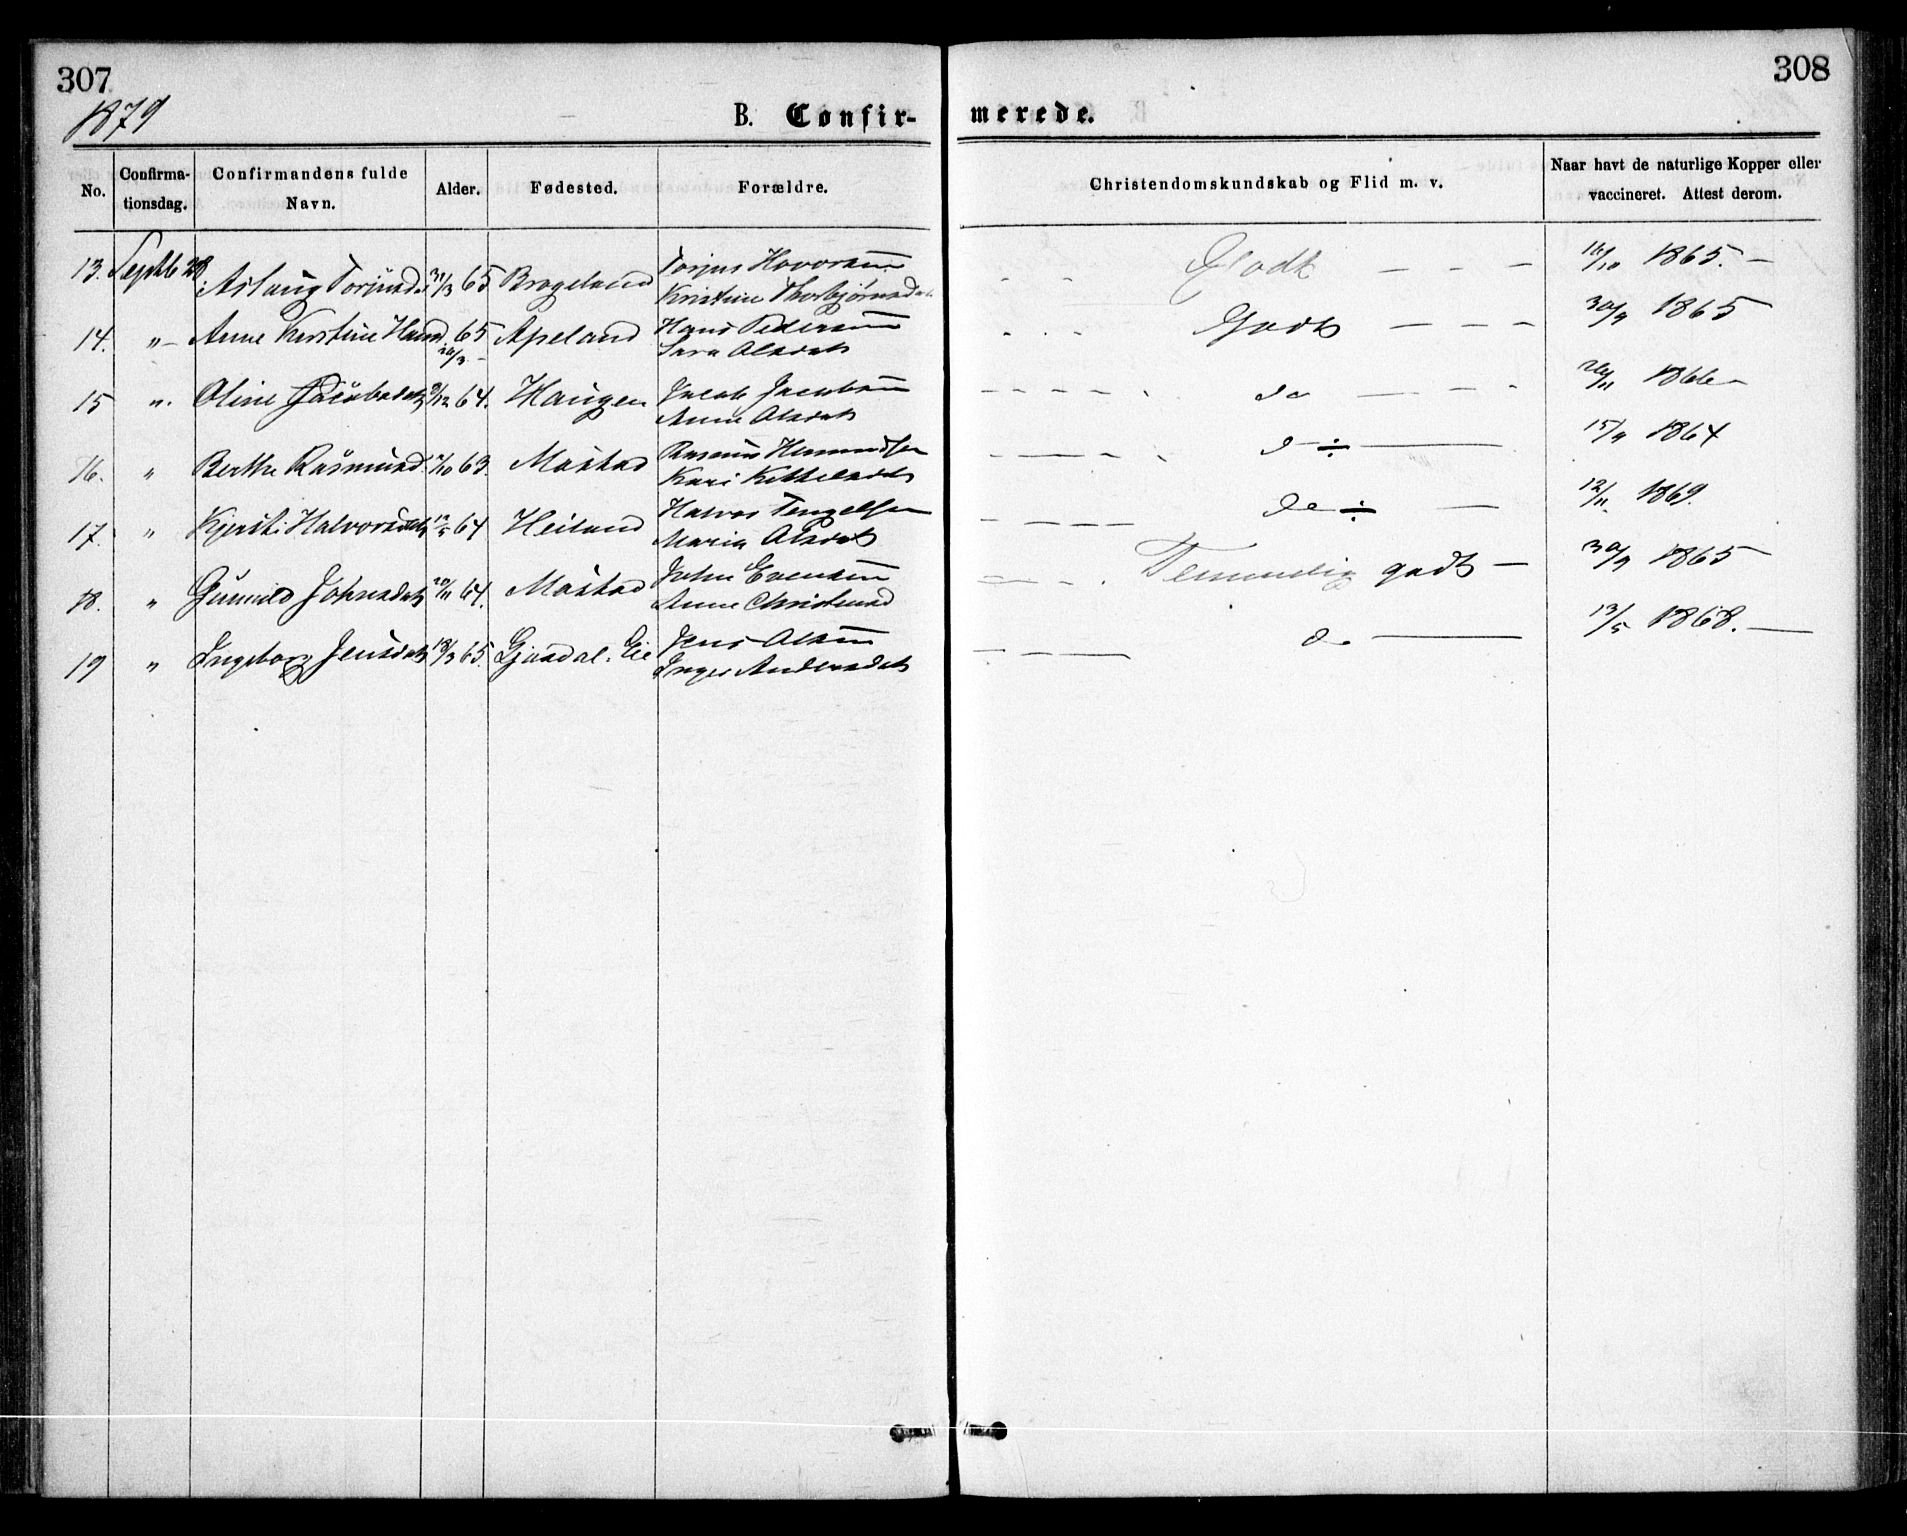 307
308
1879
B. Confir-
merede.
No.
Confirma-
tionsdag.
Confirmandens fulde
Navn.
Alder.
Fødested.
Forældre.
Christendomskundskab og Flid m. v.
Naar havt de naturlige Kopper eller
vaccineret. Attest derom.
13. Septb 28 Aslaug Torjusd. 31/3 65 Brogeland Torjus Hovorsen
Kristine Thorbjørnsd. Godt — — — 1865. —
14. " — Anne Kirstine Hansd. 65 Apeland Hans Pedersen
Sara Olsdat Godt — — — 30/9 1865
15 " Oline Jacobsdat 64. Haugen Jacob Jacobsen
Anne Olsdat do — — — 1866 —
16. " Berthe Rasmusd. 63. Måstad Rasmus
Kari Kittelsdt do ÷ — 15/9 1864
17. " Kjersti Halvorsdt 12/5 64 Heiland Halvor Tengelsen
Maria Olsdt do ÷ — 12/11. 1869.
18. " Gunnild Johnsdat 20/11 64. Måstad John Evensen
Anne Christensd Temmelig godt — 30/9 1865
19 " Ingeborg Jensdat 18/3 65. Gjersdal. Eie Jens Olsen
Inger Andersdat do — 13/5 1868. —